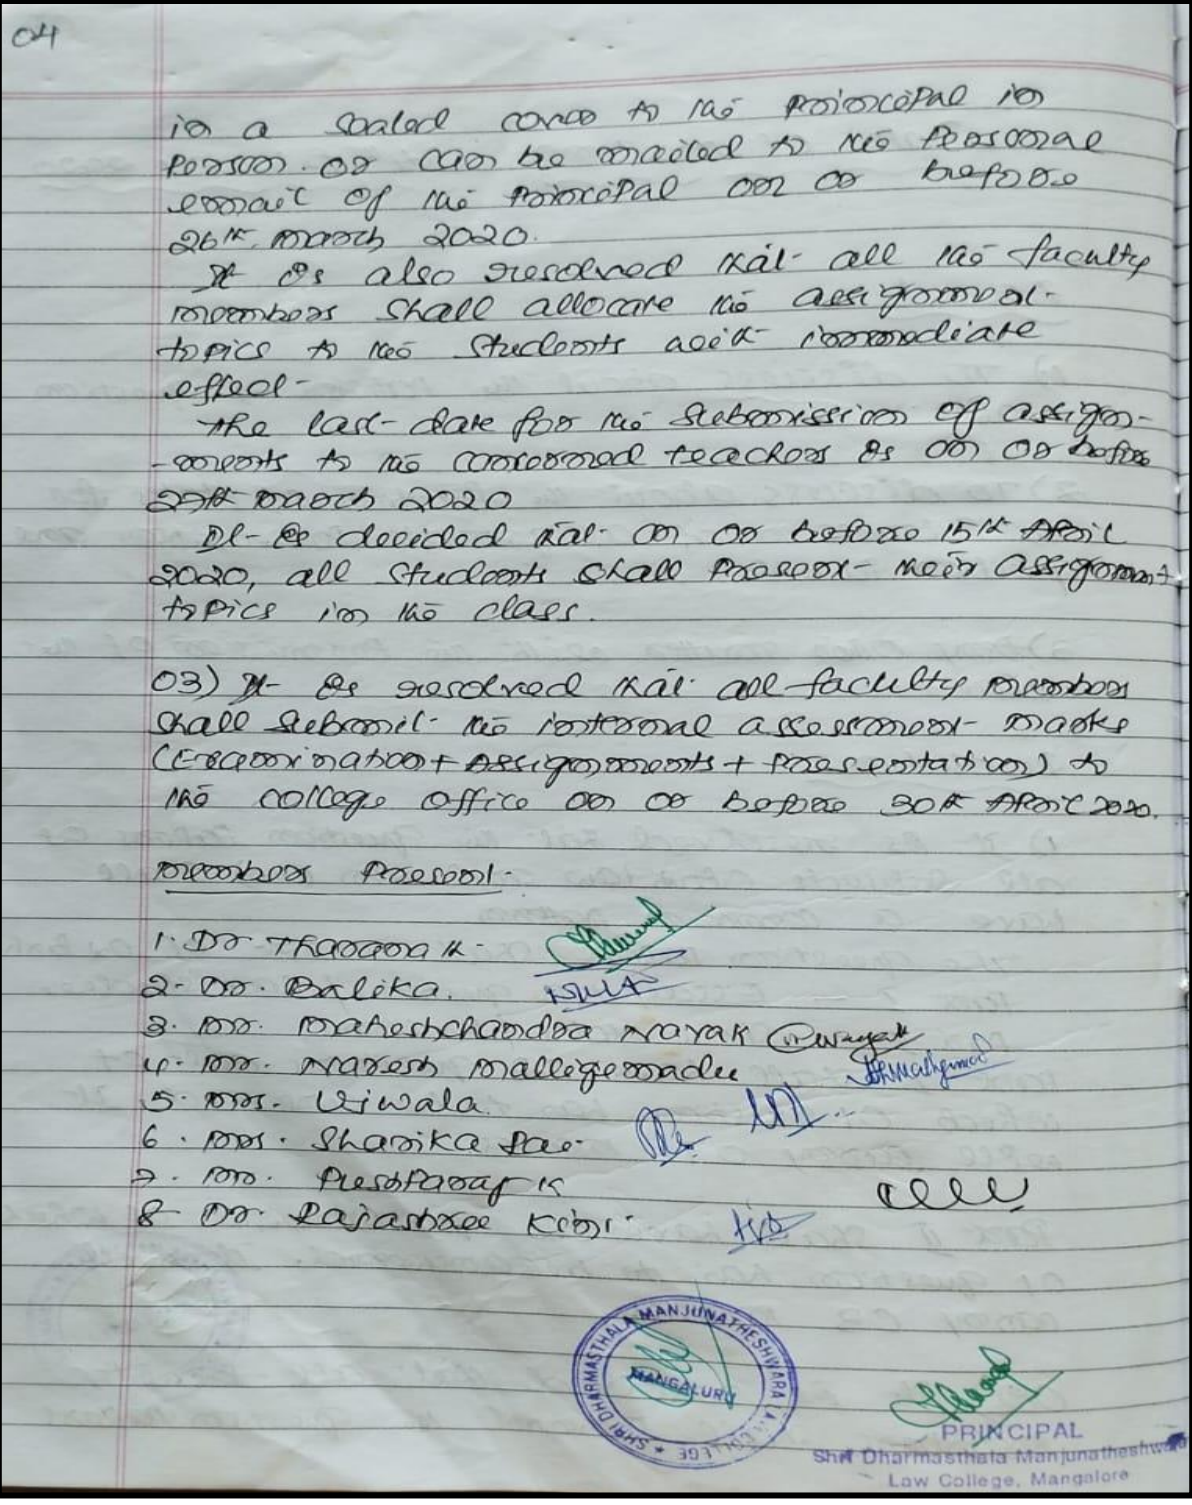 04
in a sealed cover to the principal in
person. or can be mailed to the personal
email of the principal on or before
26th march 2020.
It is also resolved that all the faculty
members shall allocate the assignment
topics to the students with immediate
effect.
The last date for the submission of assign-
-ments to the concerned teachers is on or before
29th march 2020
It is decided that on or before 15th April
2020, all students shall present their assignment
topics in the class.
03) It is resolved that all faculty members
shall submit the internal assessment marks
(Examination + Assignments + Presentation) to
the college office on or before 30th April 2020.
members present.
1. Dr Tharana K.
2. Dr. Balika.
3. mr. maheshchandra Nayak
4. mr. Naresh mallige
5. mrs.
6. mrs. Sharika Rai
7. mr. Pushparaj K
8. Dr. Rajashree
SHRI DHARMASTHALA MANJUNATHESHWARA LAW COLLEGE
MANGALURU
PRINCIPAL
Shri Dharmasthala Manjunatheshwara
Law College, Mangalore